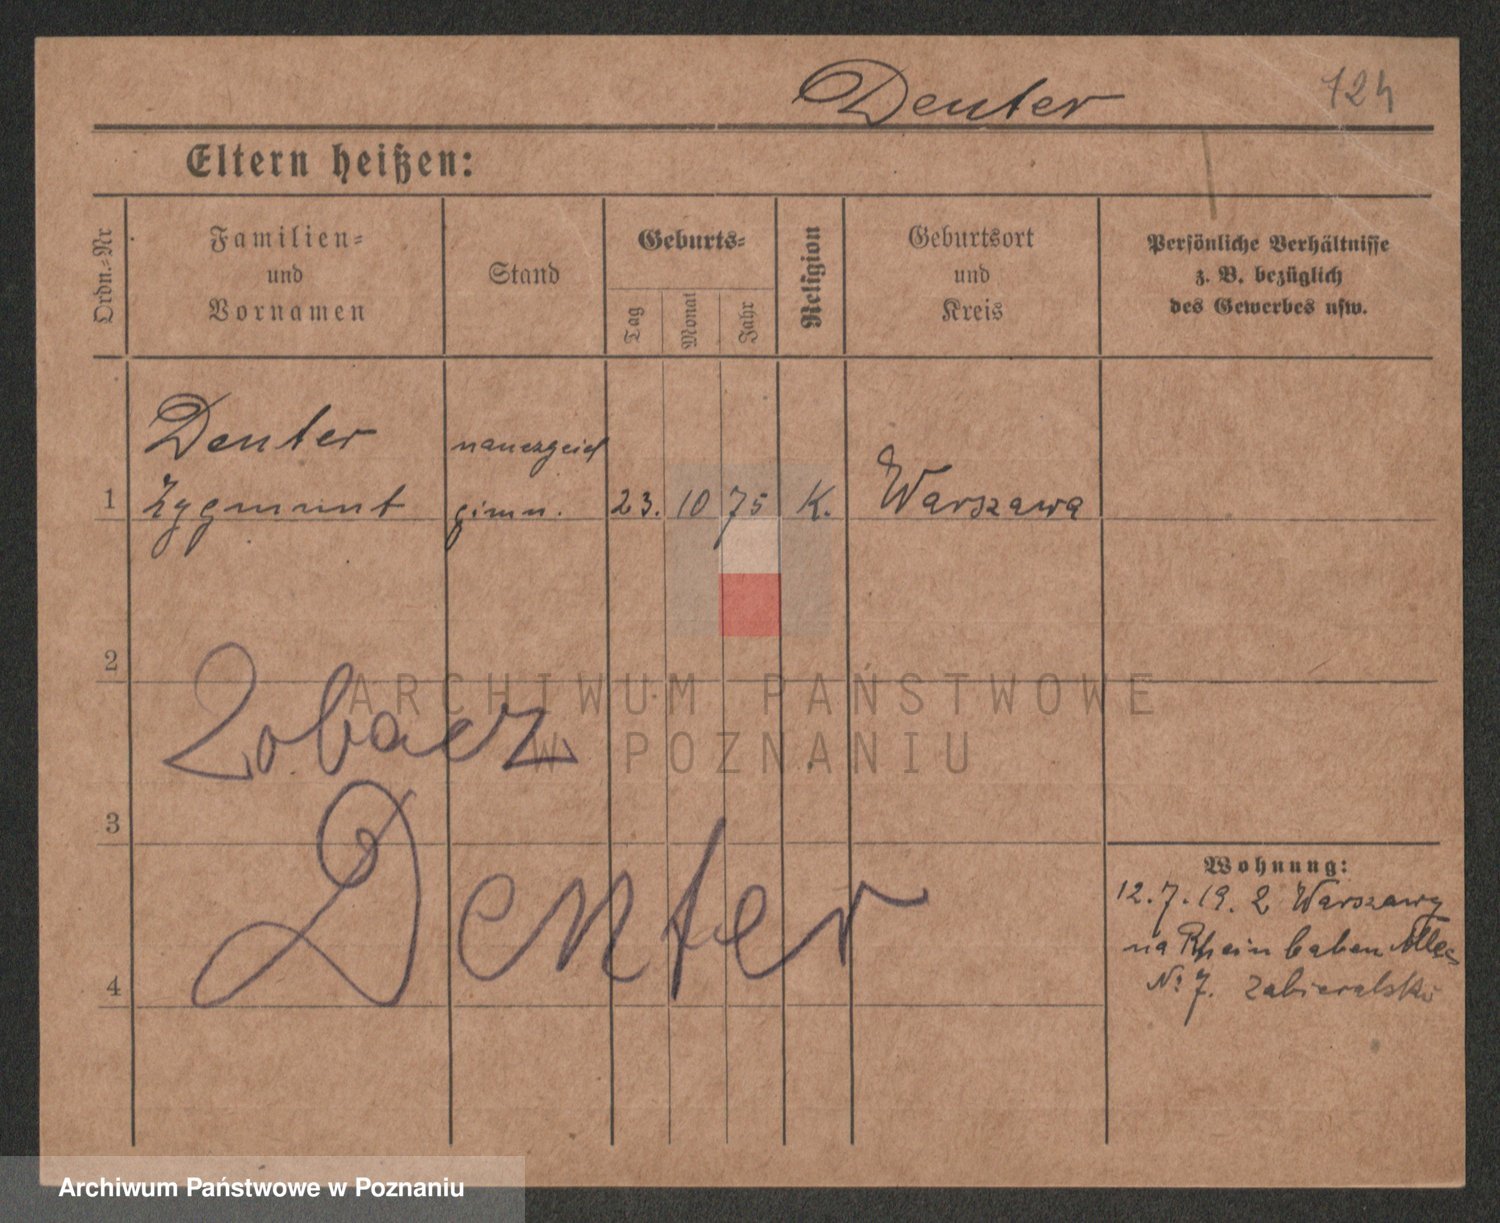 Deuter 124
Eltern heißen:
Ordn.-Nr
Familien-
und
Vornamen
Stand
Geburts-
Tag
Monat
Jahr
Religion
Geburtsort
und
Kreis
Persönliche Verhältnisse
z. B. bezüglich
des Gewerbes usw.
Deuter nauczyciel
1 Zygmunt gimn. 23. 10 75 K. Warszawa
2
Zobacz
ARCHIWUM PAŃSTWOWE
W POZNANIU
3
Denter
4
Wohnung:
12.7.19. z Warszawy
na Rheinbaben Allee
No 7. Zabieralski
Archiwum Państwowe w Poznaniu